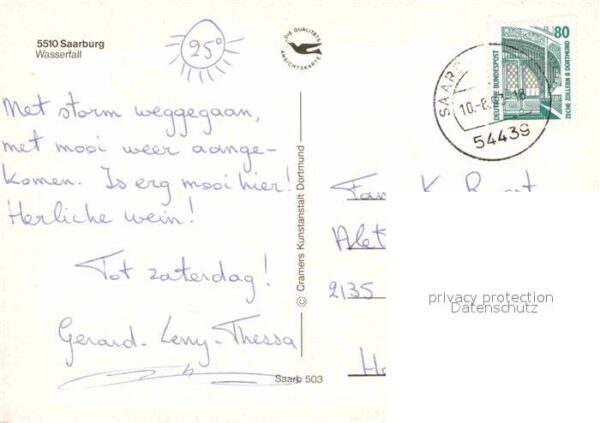 5510 Saarburg
Wasserfall
25°
DIE QUALITÄTS
ANSICHTSKARTE
Met storm weggegaan,
met mooi weer aange-
komen. Is erg mooi hier!
Herliche wein!
Tot zaterdag!
Gerard-Leny-Thessa
© Cramers Kunstanstalt Dortmund
Saarb 503
80
DEUTSCHE BUNDESPOST
ZECHE ZOLLERN II DORTMUND
SAARB
54439
Fam K.
2135
privacy protection
Datenschutz